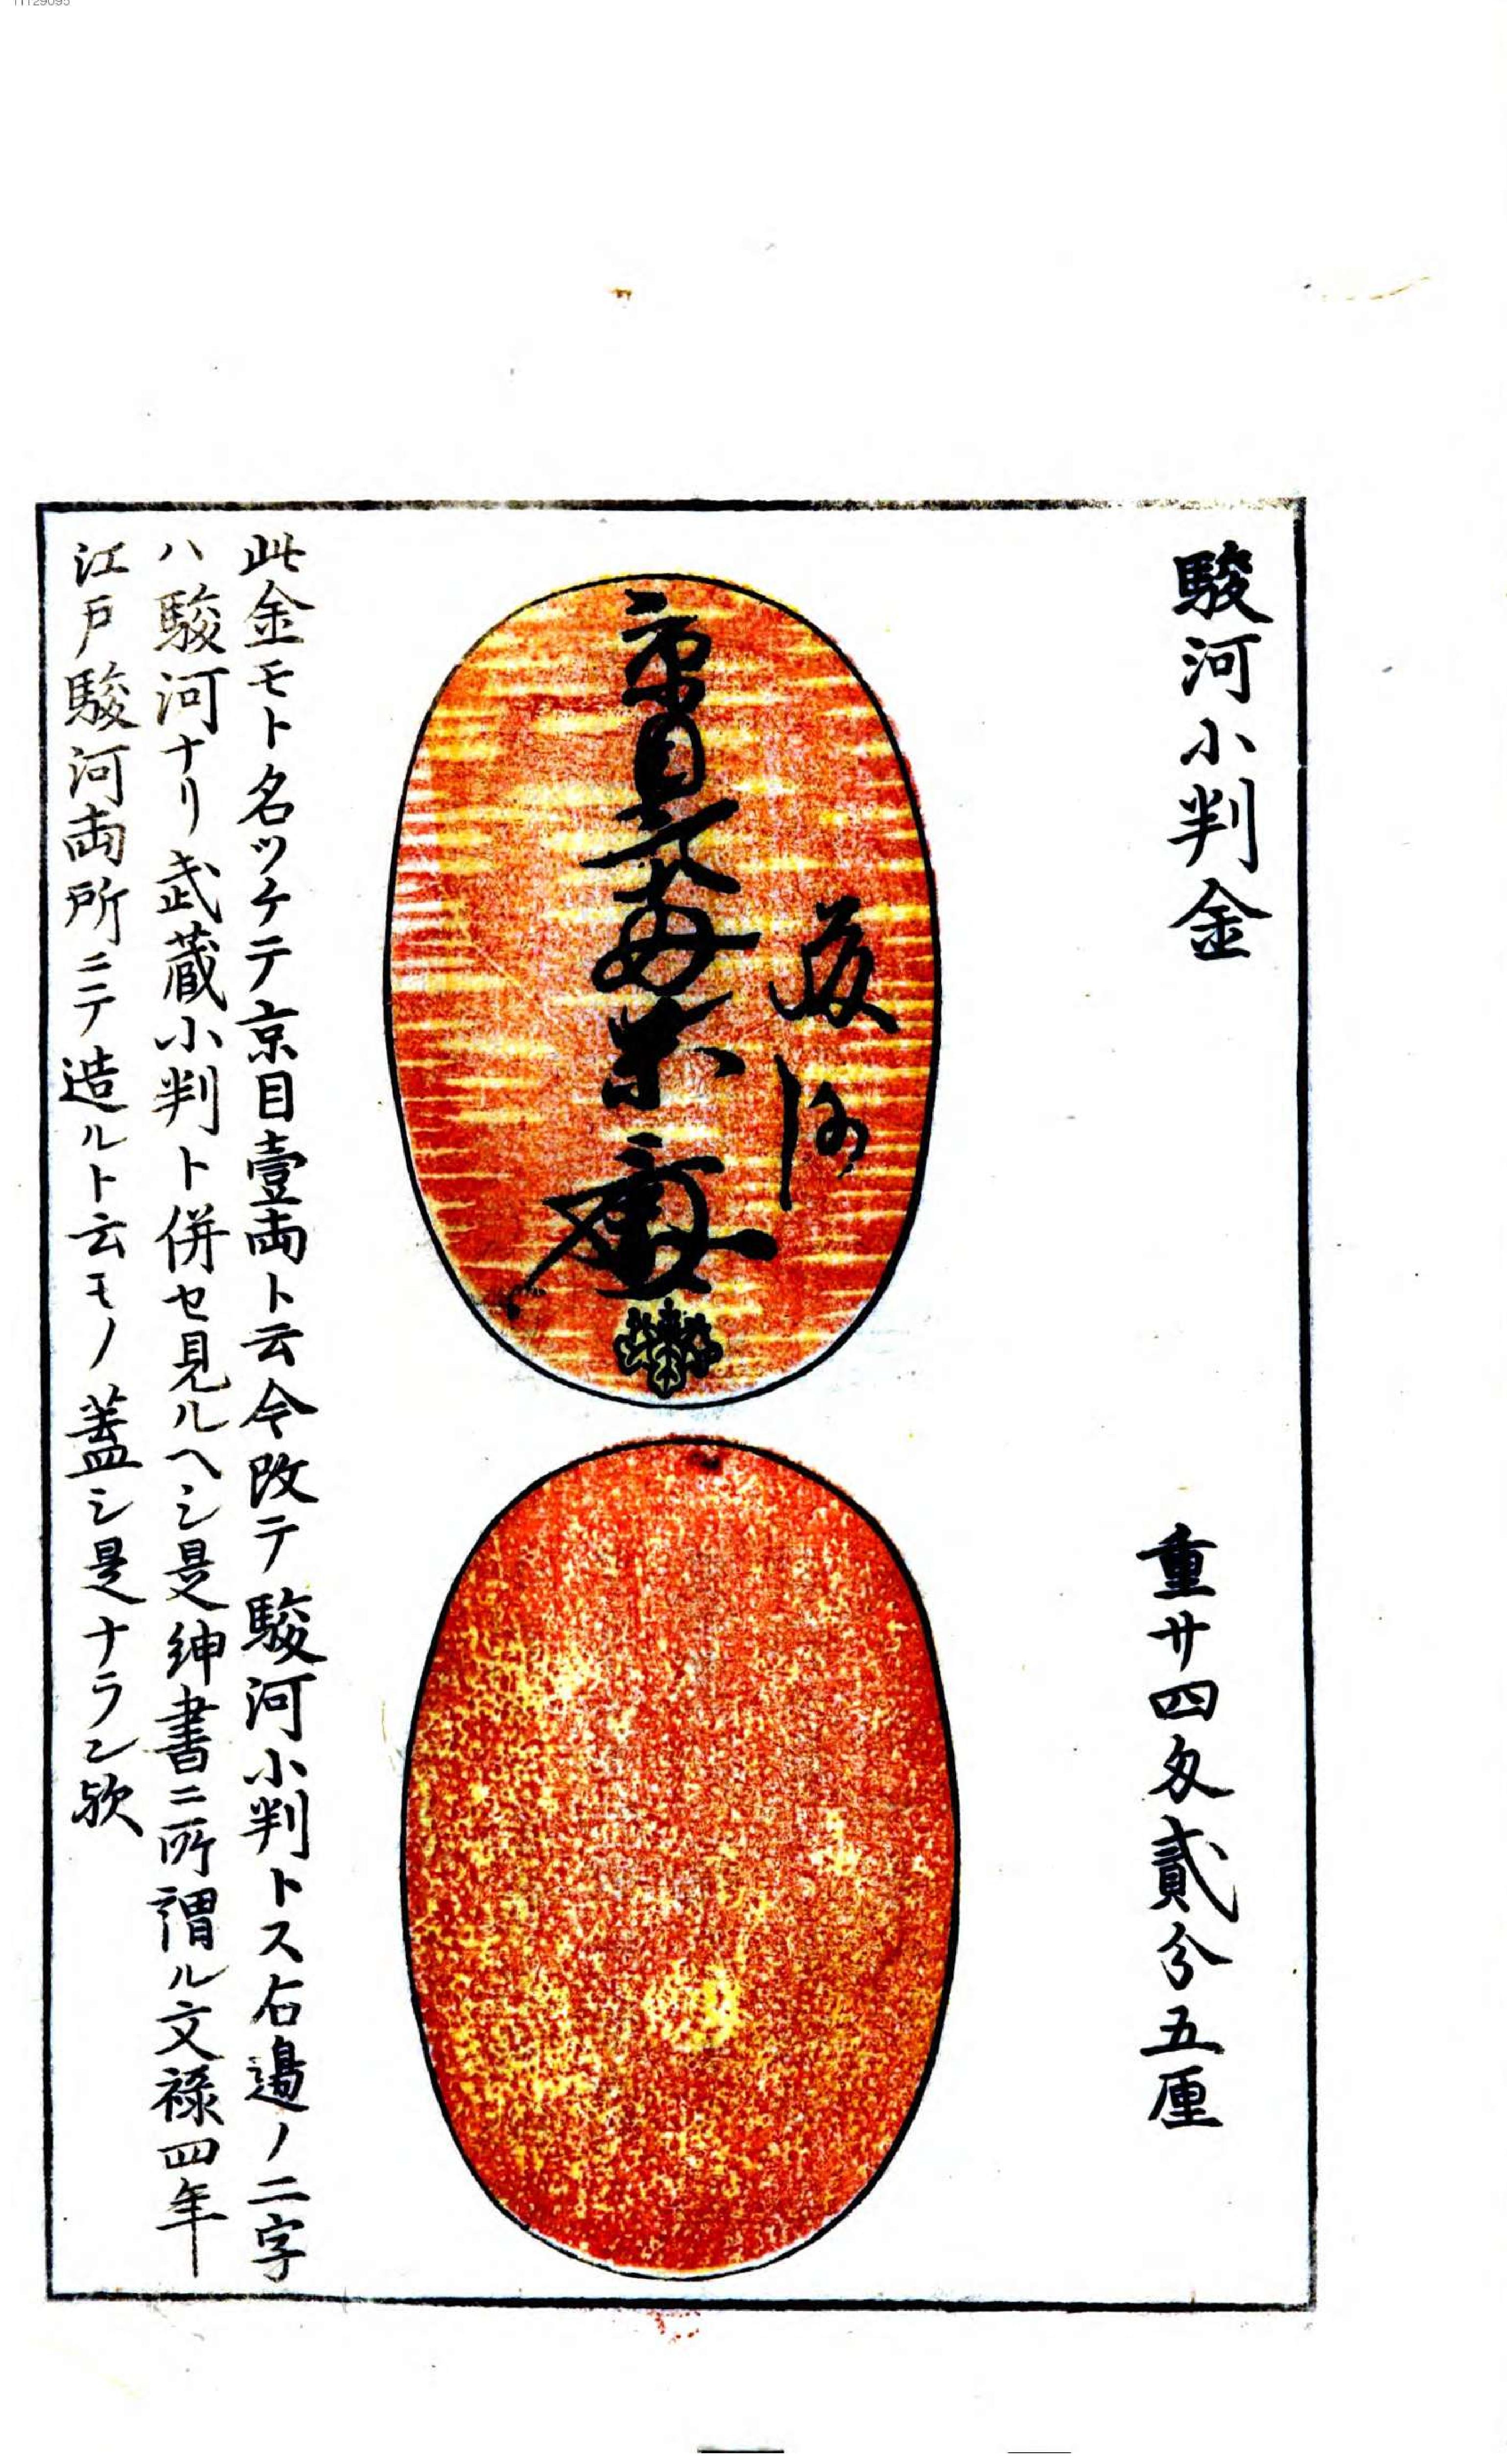 駿河小判金
重廿四匁貳分五厘
駿河
京目壹両
此金モト名ツケテ京目壹両ト云今改テ駿河小判トス右邉ノ二字
ハ駿河ナリ武蔵小判ト併セ見ルヘシ是紳書ニ所謂ル文禄四年
江戸駿河両所ニテ造ルト云モノ蓋シ是ナラン歟